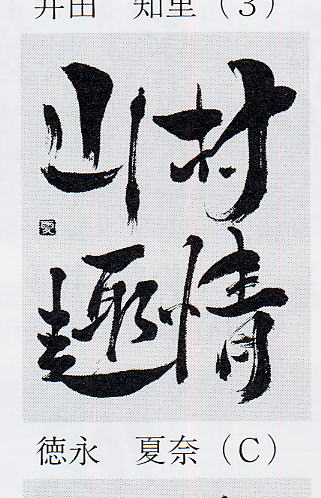 井田　知里（3）
村情
山趣
徳永　夏奈（C）